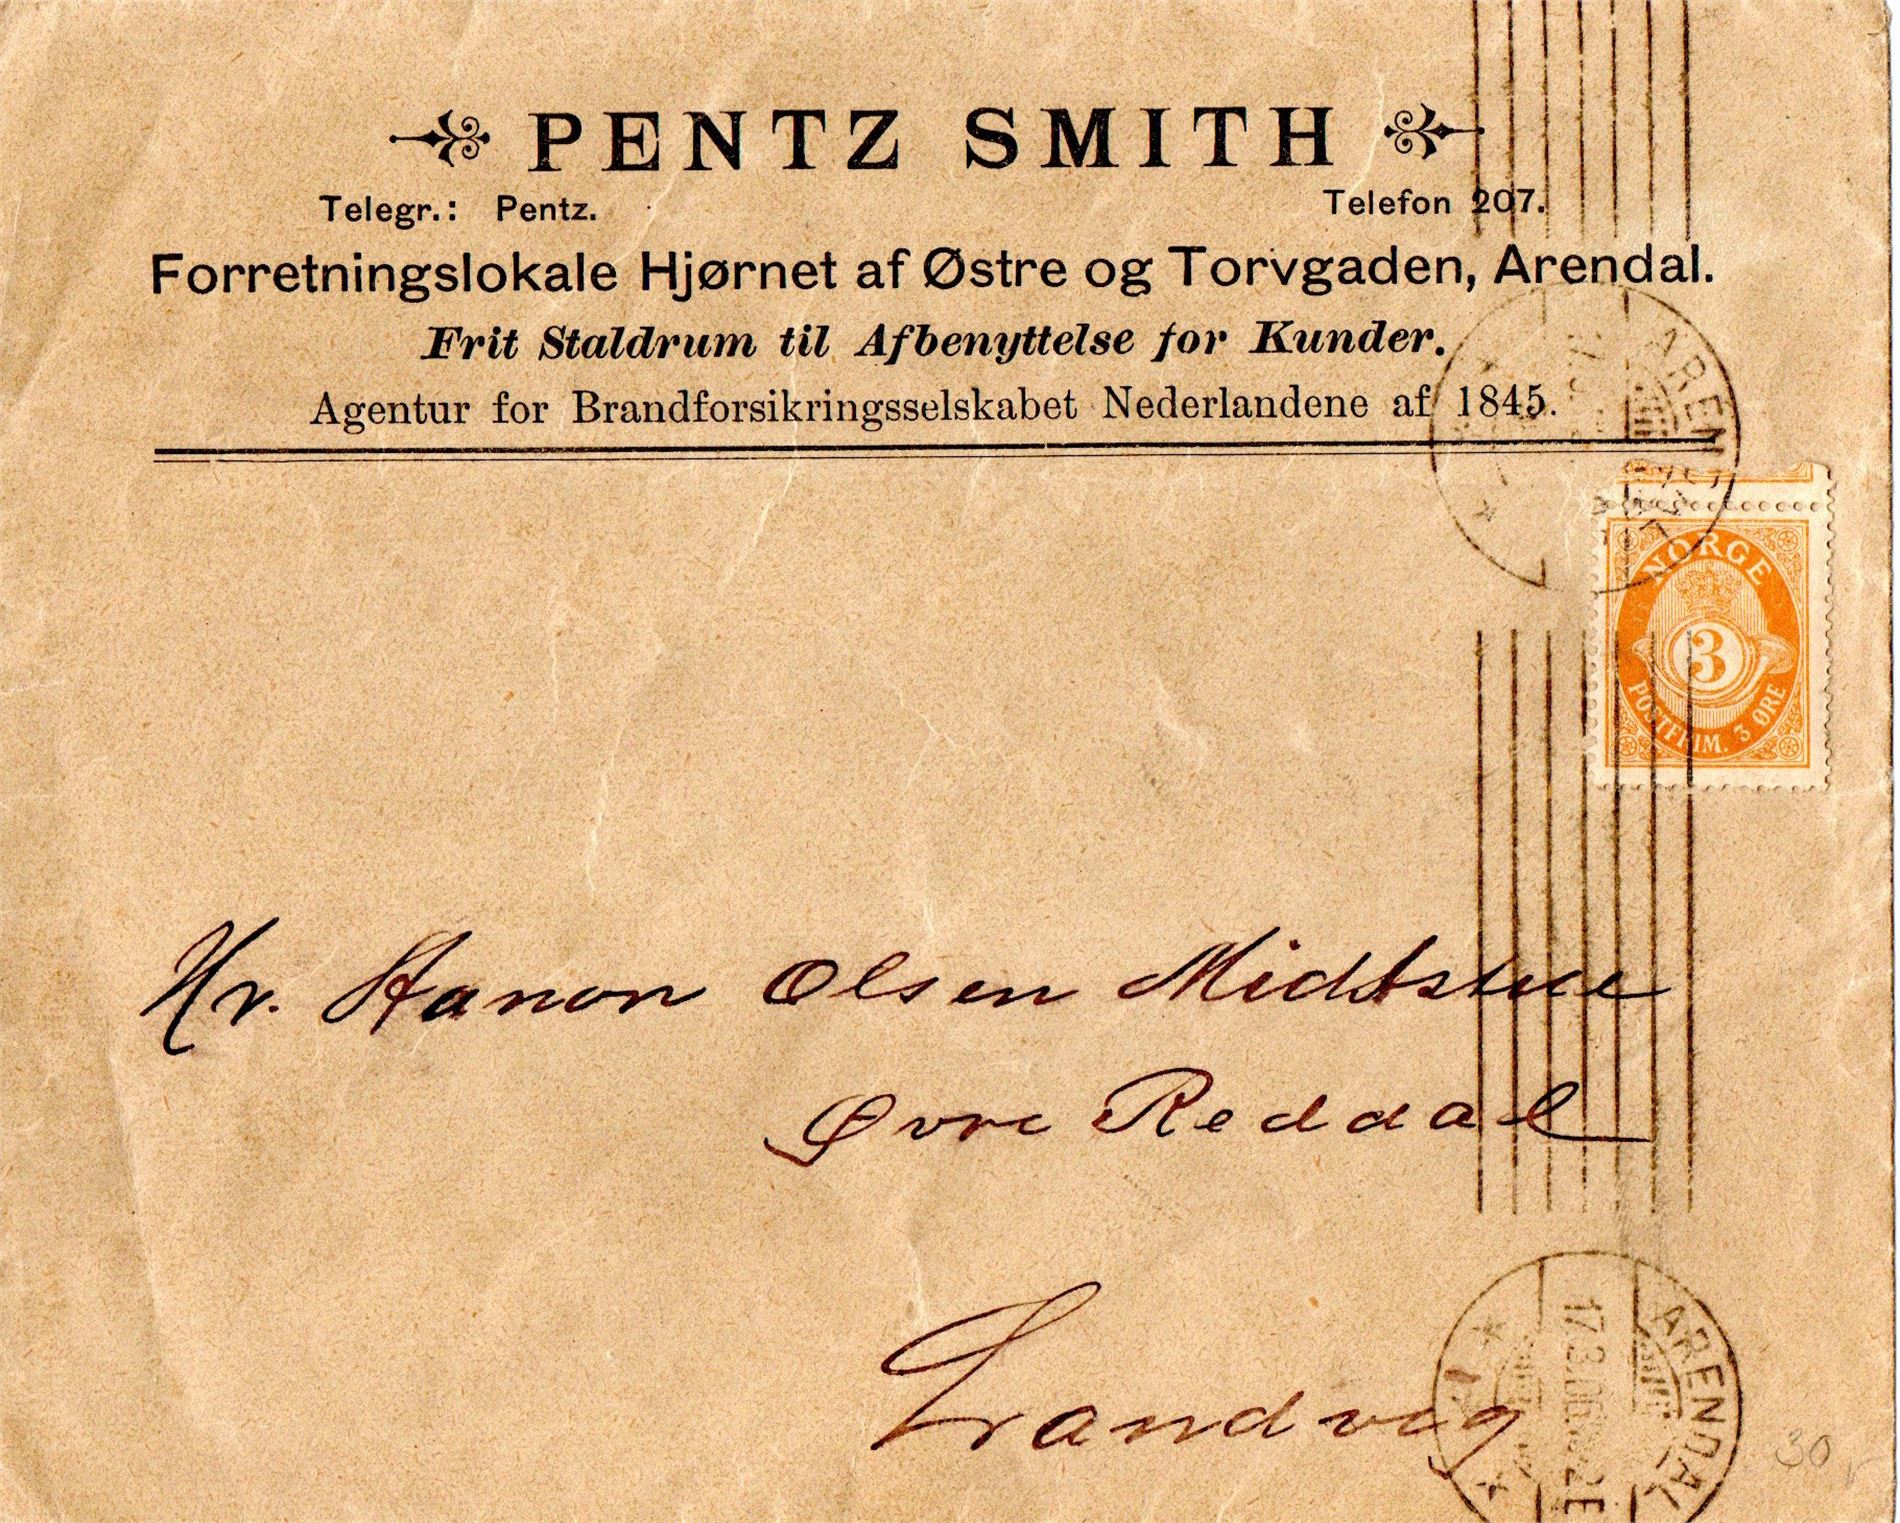 PENTZ SMITH
Telegr.: Pentz. Telefon 207.
Forretningslokale Hjørnet af Østre og Torvgaden, Arendal.
Frit Staldrum til Afbenyttelse for Kunder.
Agentur for Brandforsikringsselskabet Nederlandene af 1845.
ARENDAL
NORGE
3
POSTFRIM. 3 ØRE
Hr. Hanon Olsen Midtstue
Øvre Reddal
Landvig
ARENDAL
17.3.06
30